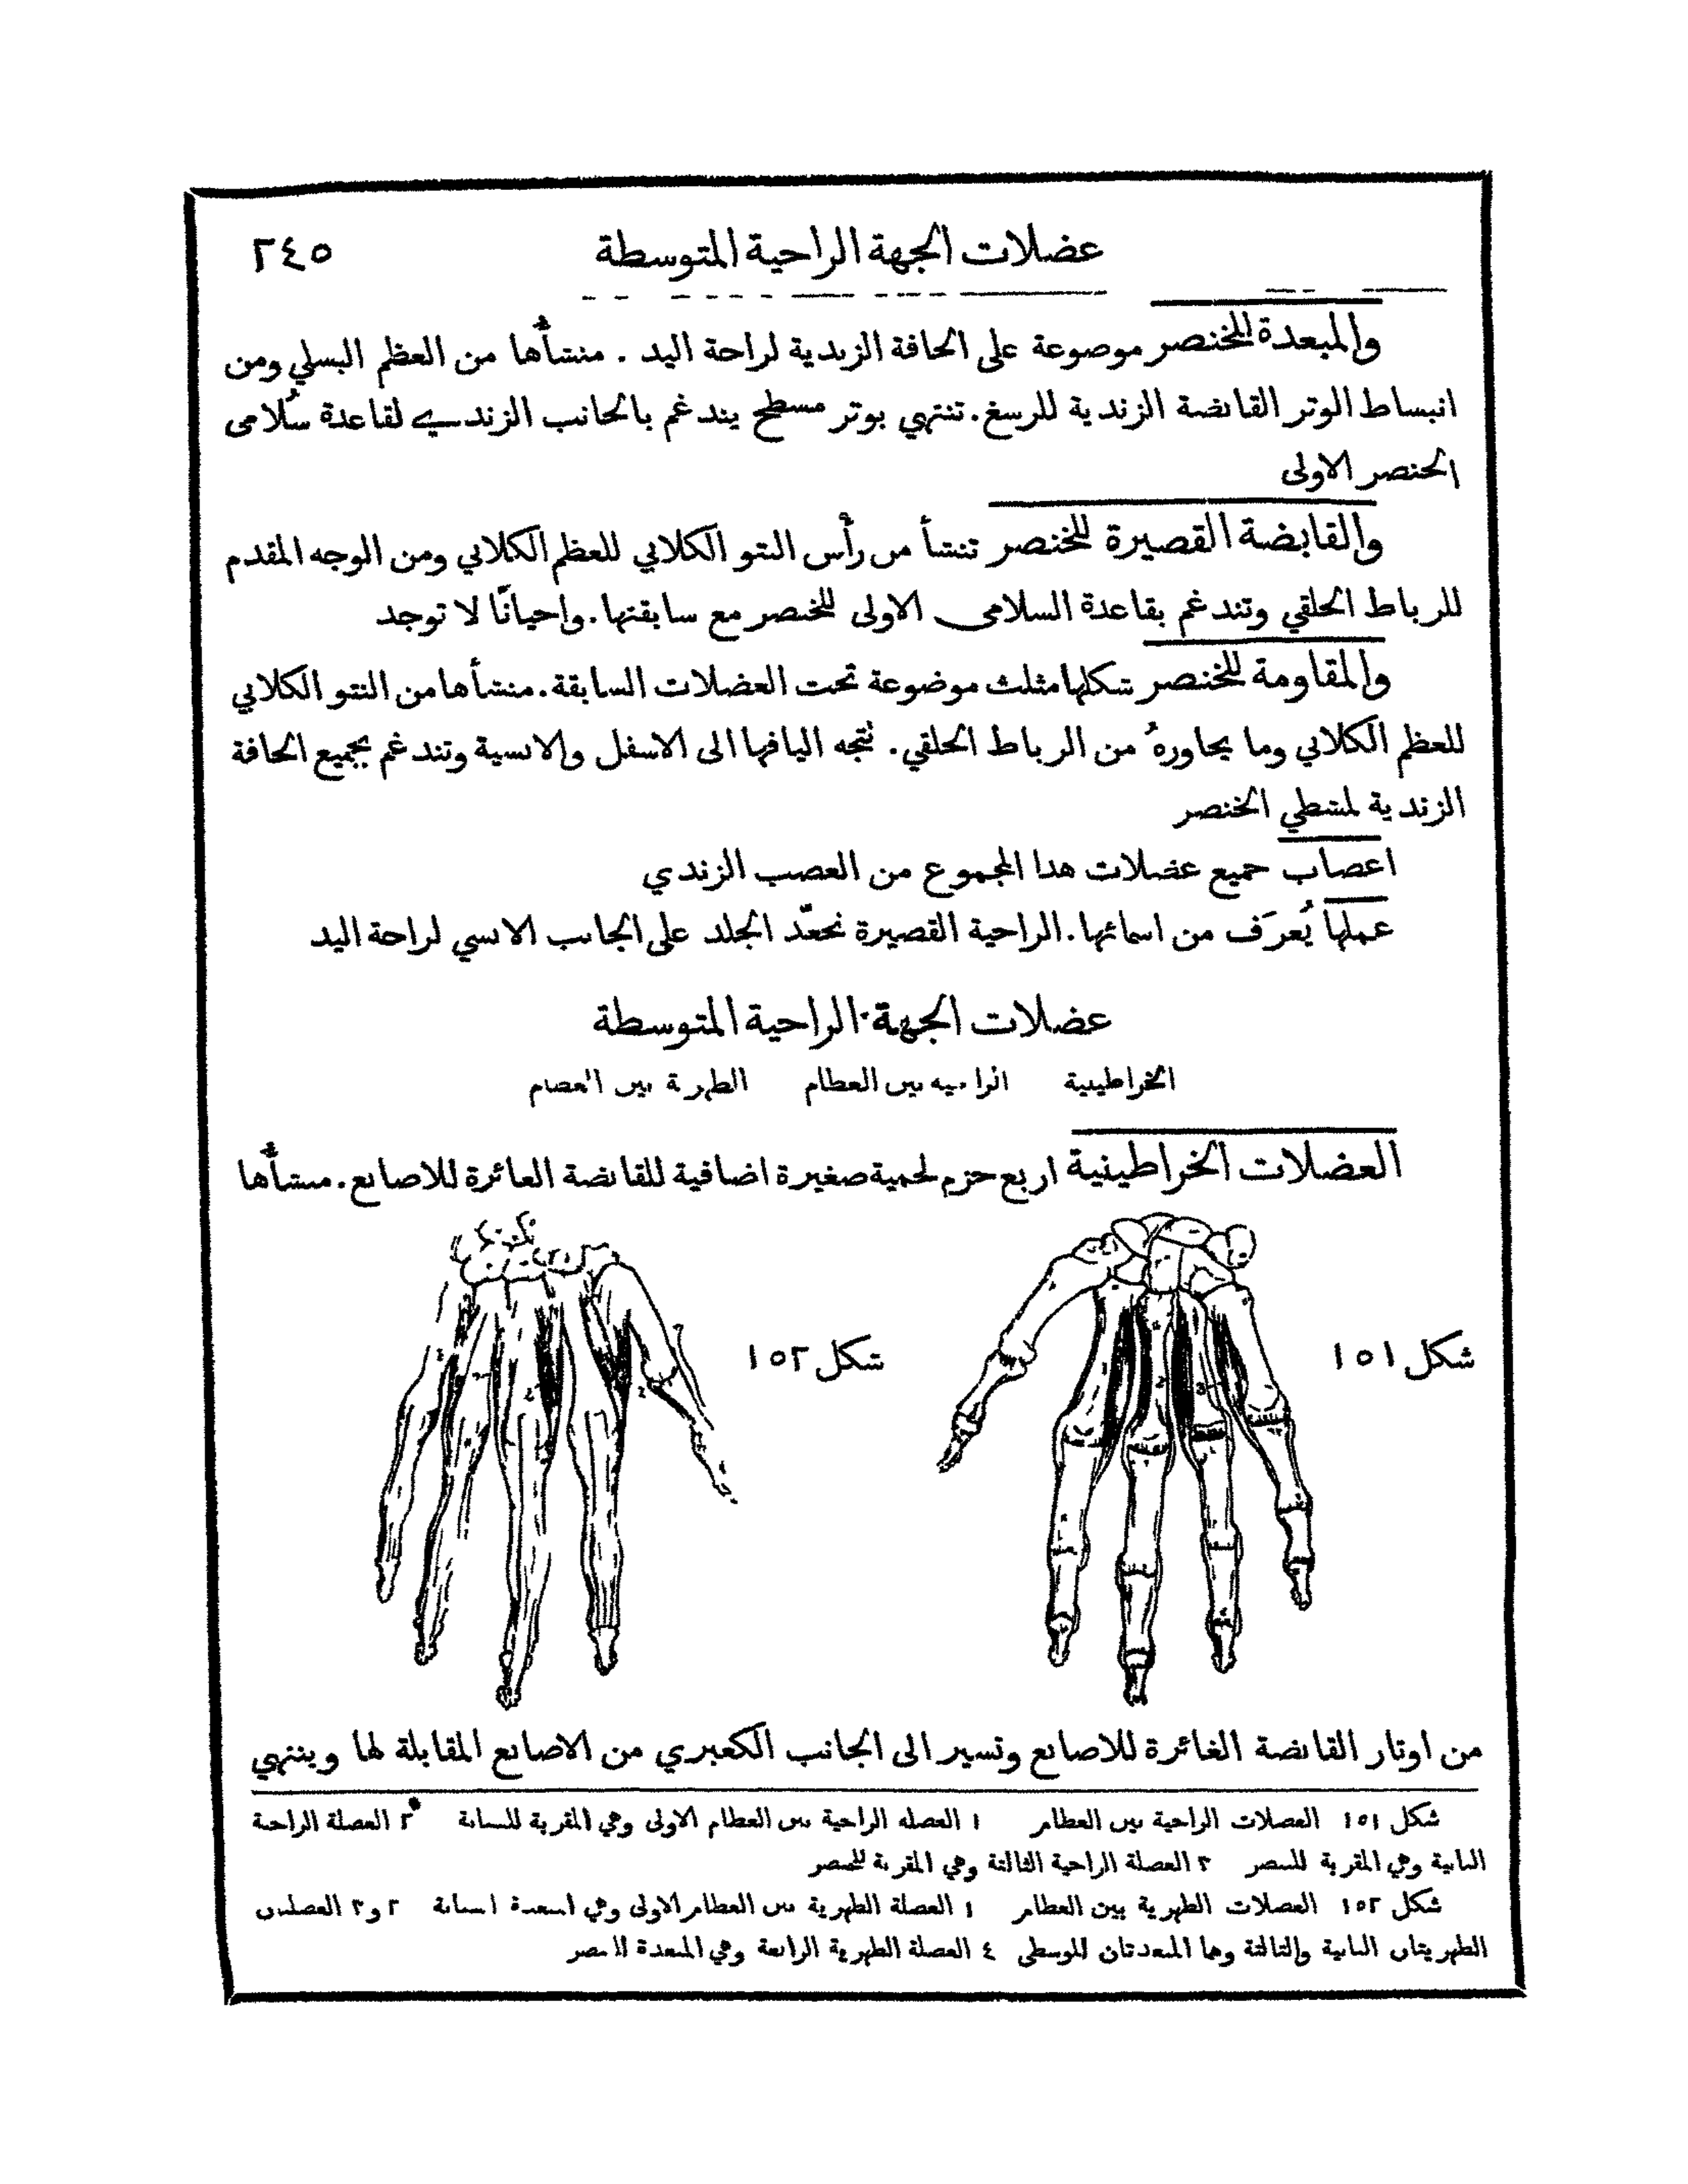 عضلات الجهة الراحية المتوسطة ٢٤٥
والمبعدة للخنصر موضوعة على الحافة الزندية لراحة اليد . منشأُها من العظم البسلي ومن
انبساط الوتر القابضة الزندية للرسغ . تنتهي بوتر مسطح يندغم بالجانب الزندي لقاعدة سُلامى
الخنصر الاولى
والقابضة القصيرة للخنصر تنشأ من رأْس النتو الكلابي للعظم الكلابي ومن الوجه المقدم
للرباط الحلقي وتندغم بقاعدة السلامى الاولى للخنصر مع سابقتها . واحيانًا لا توجد
والمقاومة للخنصر شكلها مثلث موضوعة تحت العضلات السابقة . منشأها من النتو الكلابي
للعظم الكلابي وما يجاورهُ من الرباط الحلقي . تتجه اليافها الى الاسفل والانسية وتندغم بجميع الحافة
الزندية لمشطي الخنصر
اعصاب جميع عضلات هذا المجموع من العصب الزندي
عملها يُعرَف من اسمائها . الراحية القصيرة تجعّد الجلد على الجانب الانسي لراحة اليد
عضلات الجهة الراحية المتوسطة
الخراطينية الراحية بين العظام الظهرية بين العظام
العضلات الخراطينية اربع حزم لحمية صغيرة اضافية للقابضة الغائرة للاصابع . منشأُها
شكل ١٥١
شكل ١٥٢
من اوتار القابضة الغائرة للاصابع وتسير الى الجانب الكعبري من الاصابع المقابلة لها وينتهي
شكل ١٥١ العضلات الراحية بين العظام ١ العضلة الراحية بين العظام الاولى وهي المقربة للسبابة ٢ العضلة الراحية
الثانية وهي المقربة للبنصر ٣ العضلة الراحية الثالثة وهي المقربة للخنصر
شكل ١٥٢ العضلات الظهرية بين العظام ١ العضلة الظهرية بين العظام الاولى وهي المبعدة السبابة ٢ و٣ العضلتين
الظهريتان الثانية والثالثة وهما المبعدتان للوسطى ٤ العضلة الظهرية الرابعة وهي المبعدة للبنصر